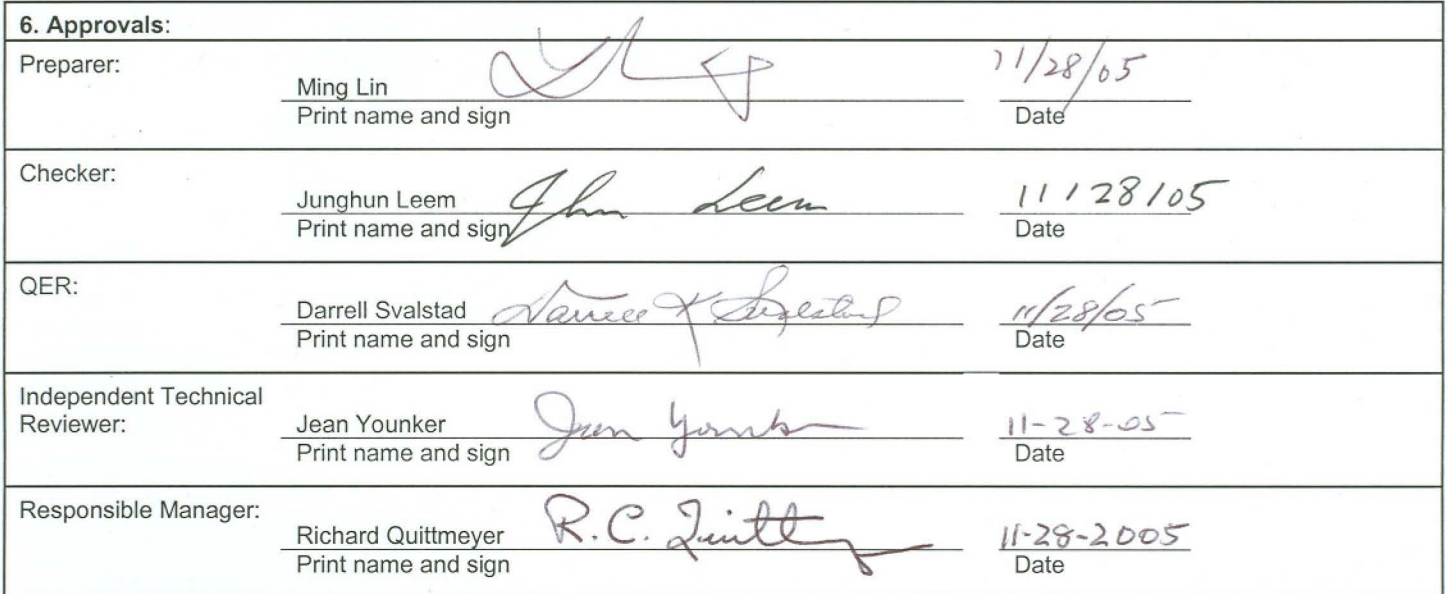 6. Approvals:
Preparer:
Ming Lin 11/28/05
Print name and sign Date
Checker:
Junghun Leem Jhn Leem 11/28/05
Print name and sign Date
QER:
Darrell Svalstad Darrell K Svalstad 11/28/05
Print name and sign Date
Independent Technical
Reviewer:
Jean Younker Jean Younker 11-28-05
Print name and sign Date
Responsible Manager:
Richard Quittmeyer R.C. Quittmeyer 11-28-2005
Print name and sign Date